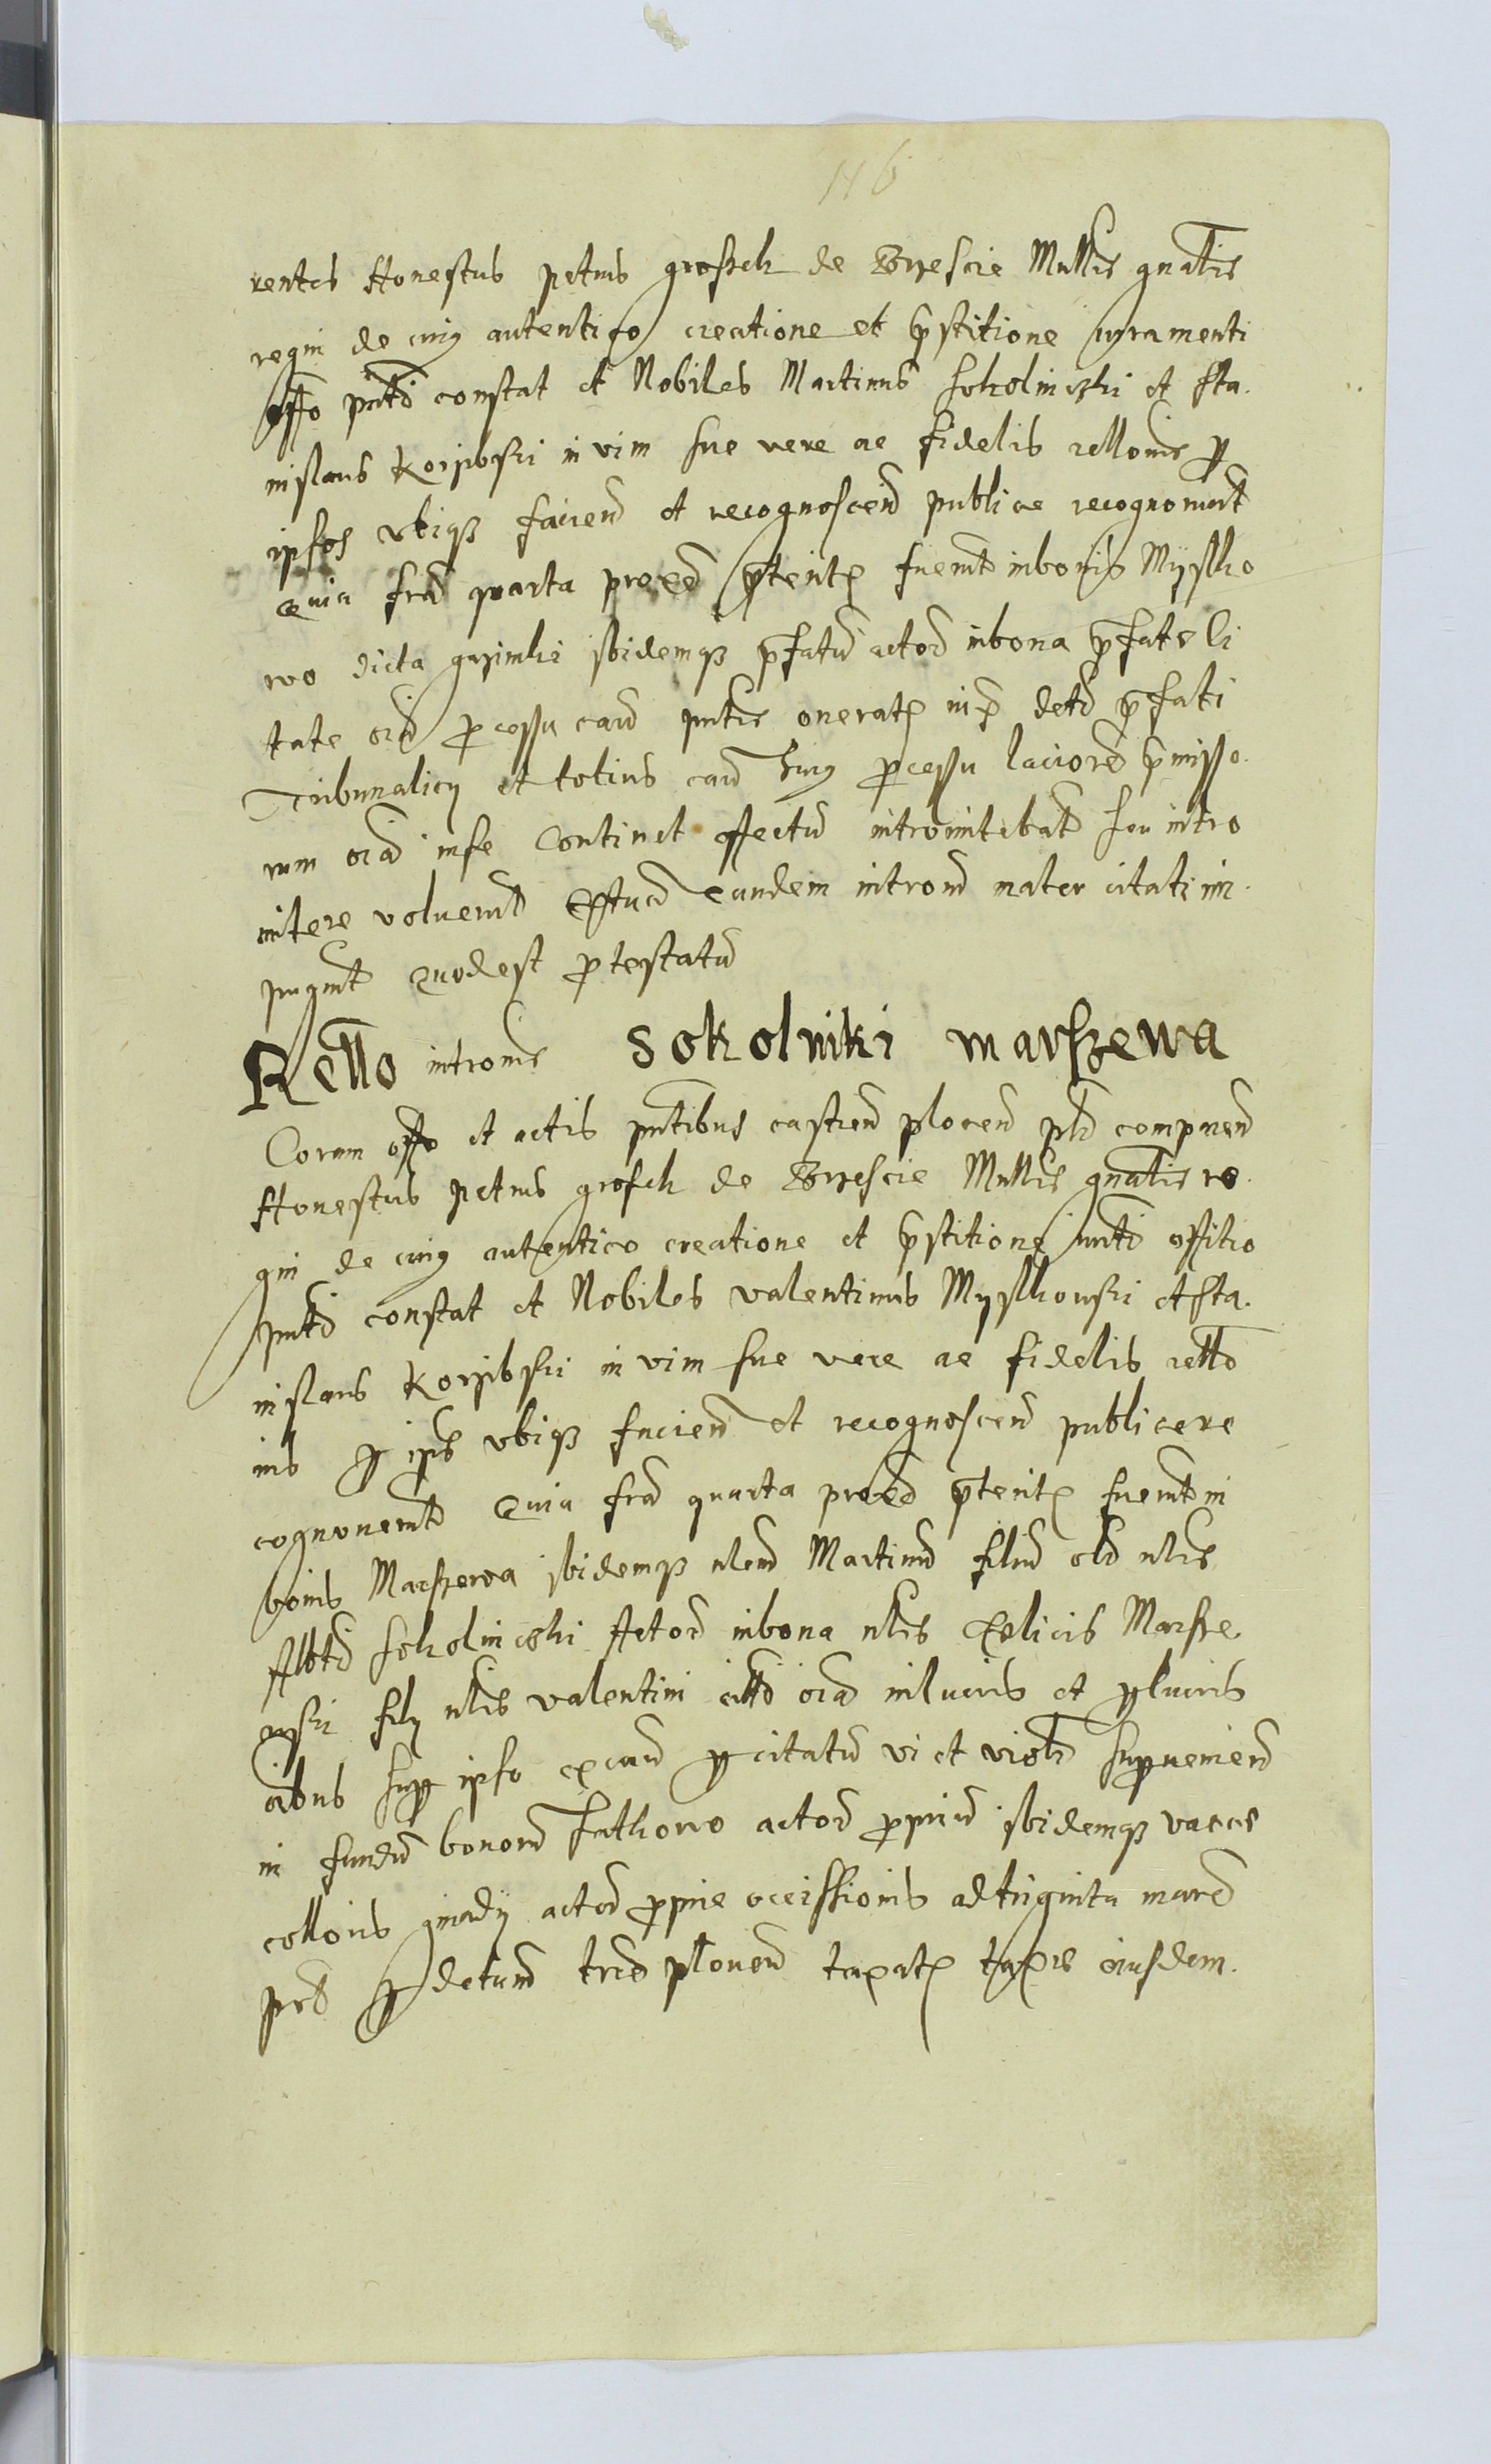 116
rentes Honestus petrus grosszek de Brzescie Mnllis gnalis
regni de cuiq autentico creatione et pstitione iuramenti
offo pntd constat et Nobiles Martinus Sokolniczki et Sta.
nislaus Korzibski in vim sue vere ac fidelis rellonis p
ipsos vbiqz faciend et recognoscend publice recognornnt
Quia fria quarta proxo pterita fuernt in bonis Myslko
wo dicta ibidemqz pfatu actore in bona pfate li
tate processu card pntis onerata in detd pfati
Tribunalicy et totius card huiq pcessu laciore pmisso.
rum in se Continet effectu intromitebat seu intro
mitere voluernt Eandem introm mater citati im
pugnt Quod est protestatu
Rello introms Sokolniki Marszewa
Coram offo et actis pntibus castren plocen pld comparen
Honestus petrus grosek de Brzescie Mnllis gnalis re.
gni de cuiq autentico creatione et pstitione iurnti offitio
pntd constat et Nobiles valentinus Myslkowski et Sta.
nislaus Korzibski in vim sue vere ac fidelis rello
nis p ipos vbiqz faciend et recognoscend publice re
cognouernt Quia fria quarta proxo pterita fuernt in
bonis Marszewa ibidemqz nlem Martinu filiu olid nlis
Albti Sokolniczki Actore in bona nlis Felicis Marsze
wski fily nlis valentini citti in lucris et plucris
abus sup ipso ex card p citatu vi et viol supueniend
in fundu bonoru actore ppriu ibidemqz vacce
colloris gniady actore pprie occissionis ad triginta marc
pcd p detum trd plonen taxata taxe eiusdem.